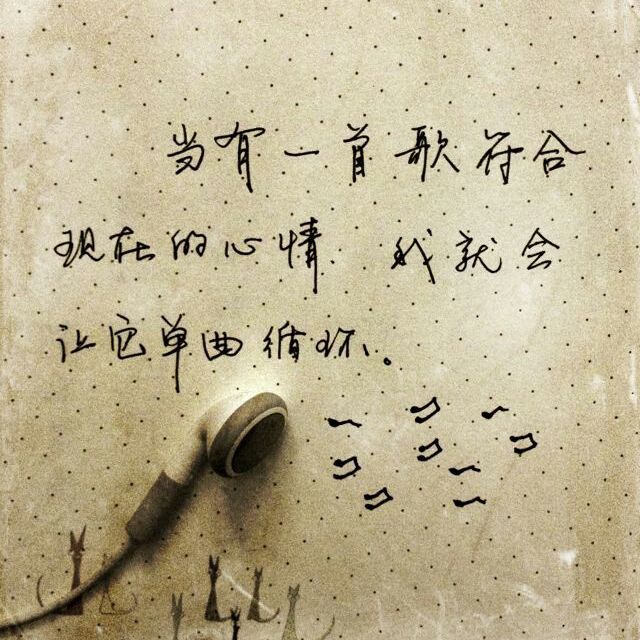 当有一首歌符合
现在的心情、我就会
让它单曲循环。